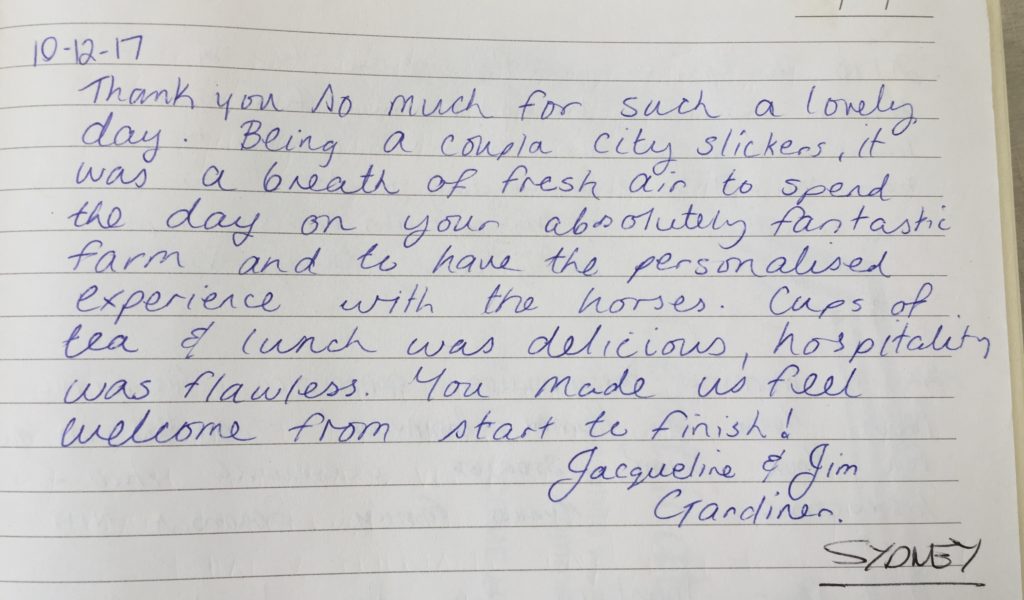 10-12-17
Thank you so much for such a lovely
day. Being a coupla city slickers, it
was a breath of fresh air to spend
the day on your absolutely fantastic
farm and to have the personalised
experience with the horses. Cups of
tea & lunch was delicious, hospitality
was flawless. You made us feel
welcome from start to finish!
Jacqueline & Jim
Gardiner.
SYDNEY